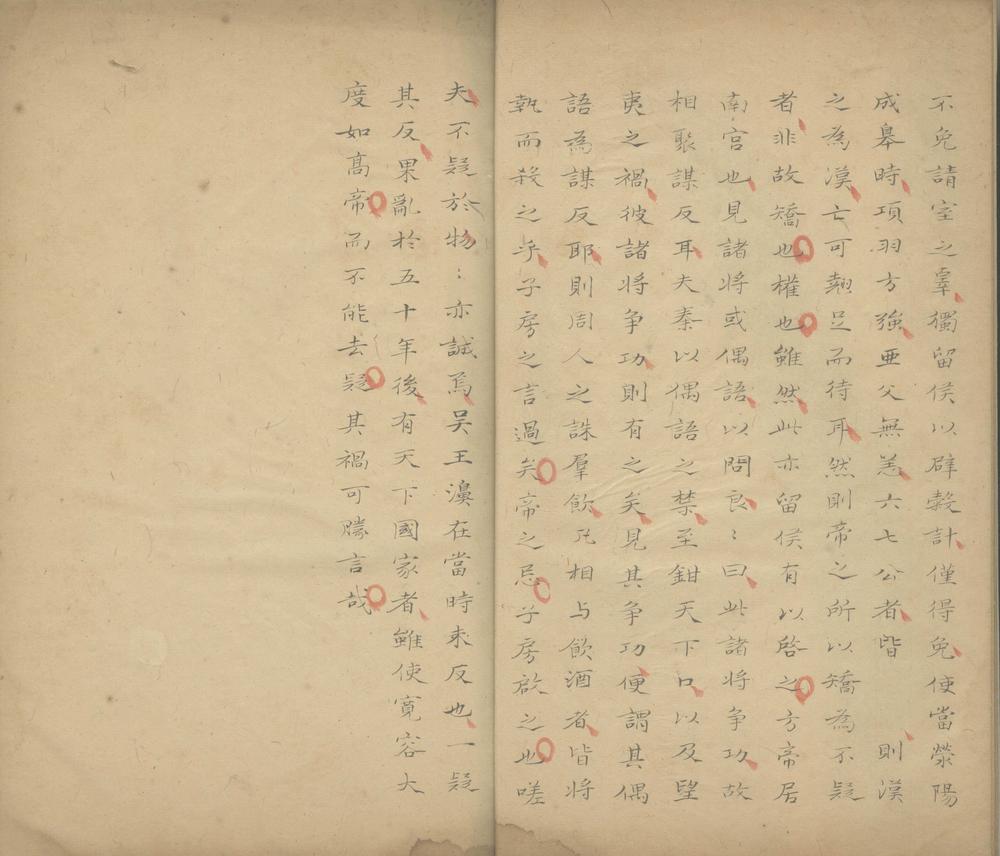 不免請室之辠獨留侯以辟穀計僅得免使當滎陽
成皋時項羽方強亜父無恙六七公者皆則漢
之為漢亡可翹足而待耳然則帝之所以矯為不疑
者非故矯也權也雖然此亦留侯有以啓之方帝居
南宮也見諸將或偶語以問良〻曰此諸將争功故
相聚謀反耳夫秦以偶語之禁至鉗天下口以及望
夷之禍彼諸將争功則有之矣見其争功便謂其偶
語為謀反耶則周人之誅羣飲凡相与飲酒者皆將
執而殺之乎子房之言過矣帝之忌子房啟之也嗟
夫不疑於物〻亦誠焉吴王濞在當時未反也一疑
其反果亂於五十年後有天下國家者雖使寬容大
度如高帝而不能去疑其禍可勝言哉